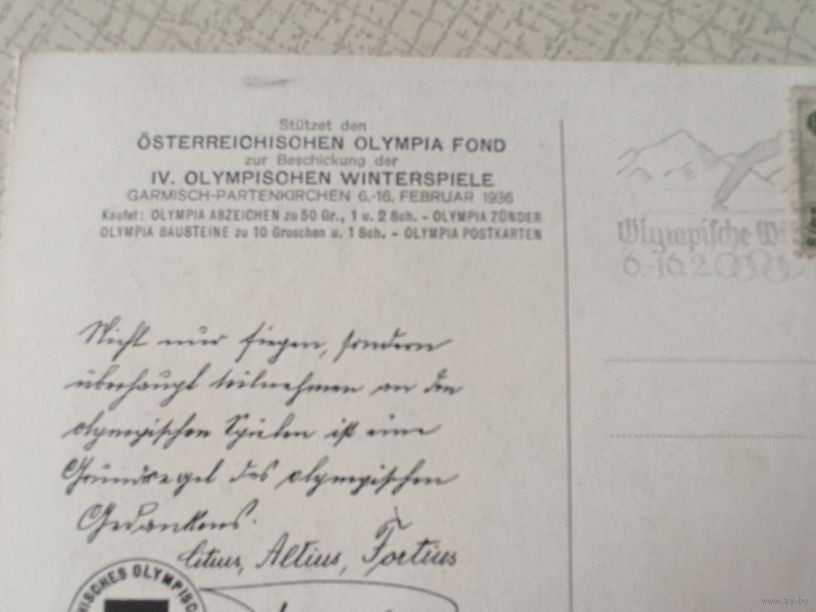 Stützet den
ÖSTERREICHISCHEN OLYMPIA FOND
zur Beschickung der
IV. OLYMPISCHEN WINTERSPIELE
GARMISCH-PARTENKIRCHEN 6.-16. FEBRUAR 1936
Kaufet: OLYMPIA ABZEICHEN zu 50 Gr., 1 u. 2 Sch. - OLYMPIA ZÜNDER
OLYMPIA BAUSTEINE zu 10 Groschen u. 1 Sch. - OLYMPIA POSTKARTEN
Olympische Wi
6.-16.2.
Nicht nur siegen, sondern
überhaupt teilnehmen an den
olympischen Spielen ist eine
Grundregel des olympischen
Gedankens.
Citius, Altius, Fortius
ISCHES OLYMPISC
www.ay.by